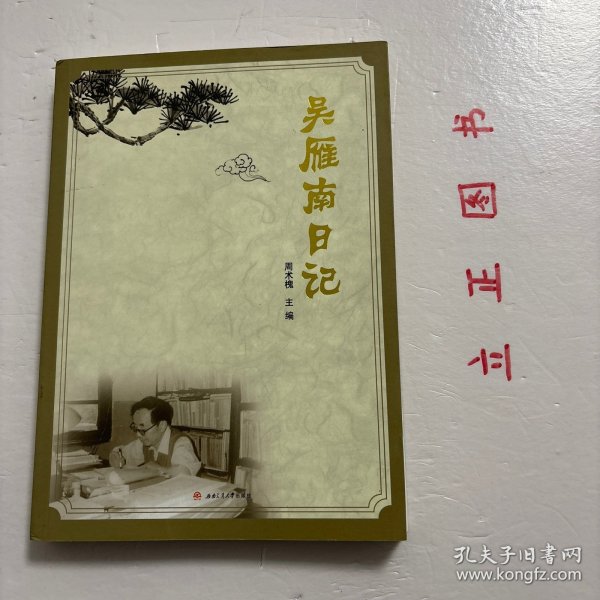 吴雁南日记
周术槐 主编
西南交通大学出版社
立正图书
孔夫子旧书网
www.kongfz.com